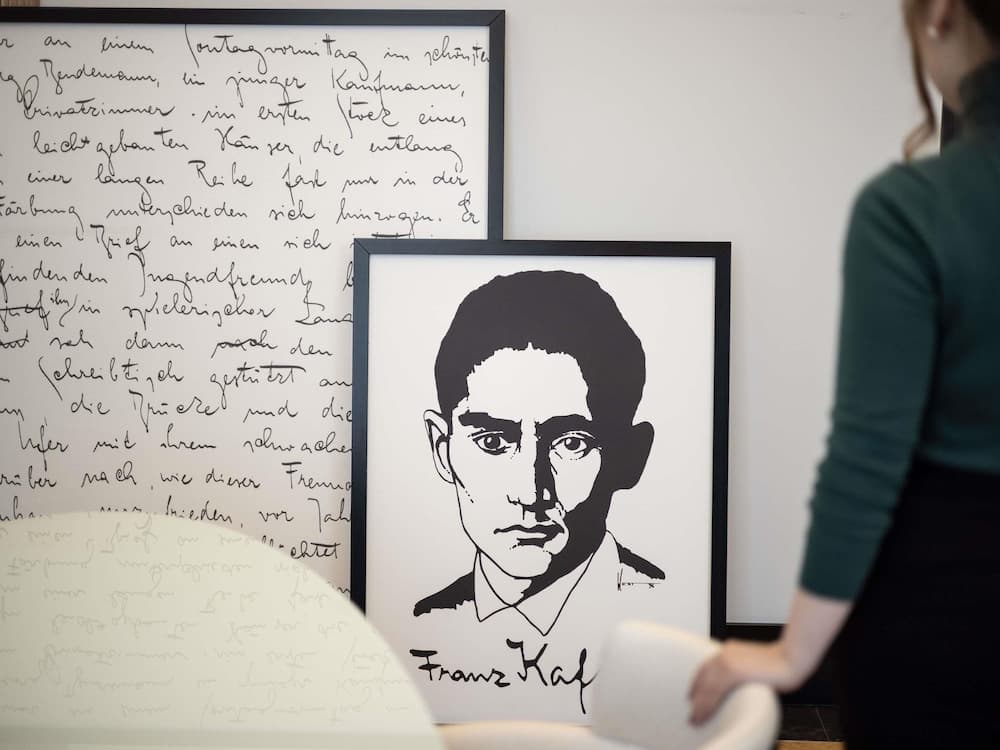 an einem Sontagvormittag im schönsten
Bendemann, ein junger Kaufmann,
Privatzimmer im ersten Stock eines
leichtgebauten Häuser, die entlang
einer langen Reihe fast nur in der
Färbung unterschieden sich hinzogen. Er
einen Brief an einen sich
findenden Jugendfreund
ihn in spielerischer
sah dann nach den
Schreibtisch gestützt
die Brücke und die
Ufer mit ihrem schwachen
nach, wie dieser Freund
vor
Franz Kaf